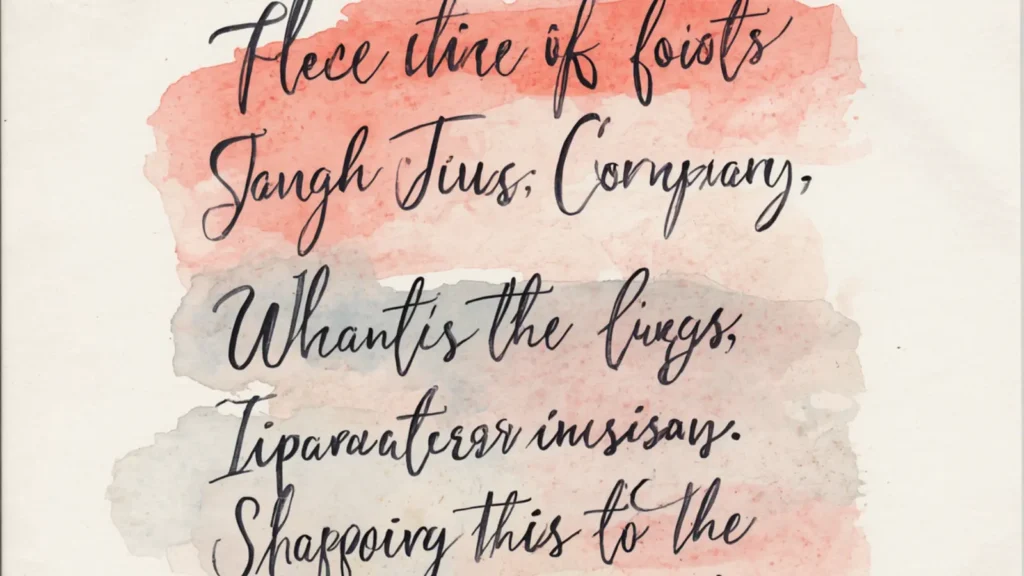 Flece itine of foiots
Jangh Jius; Compxany,
Whantis the lixgs,
Iiparaatersr inısisay.
Shappoiry this to the